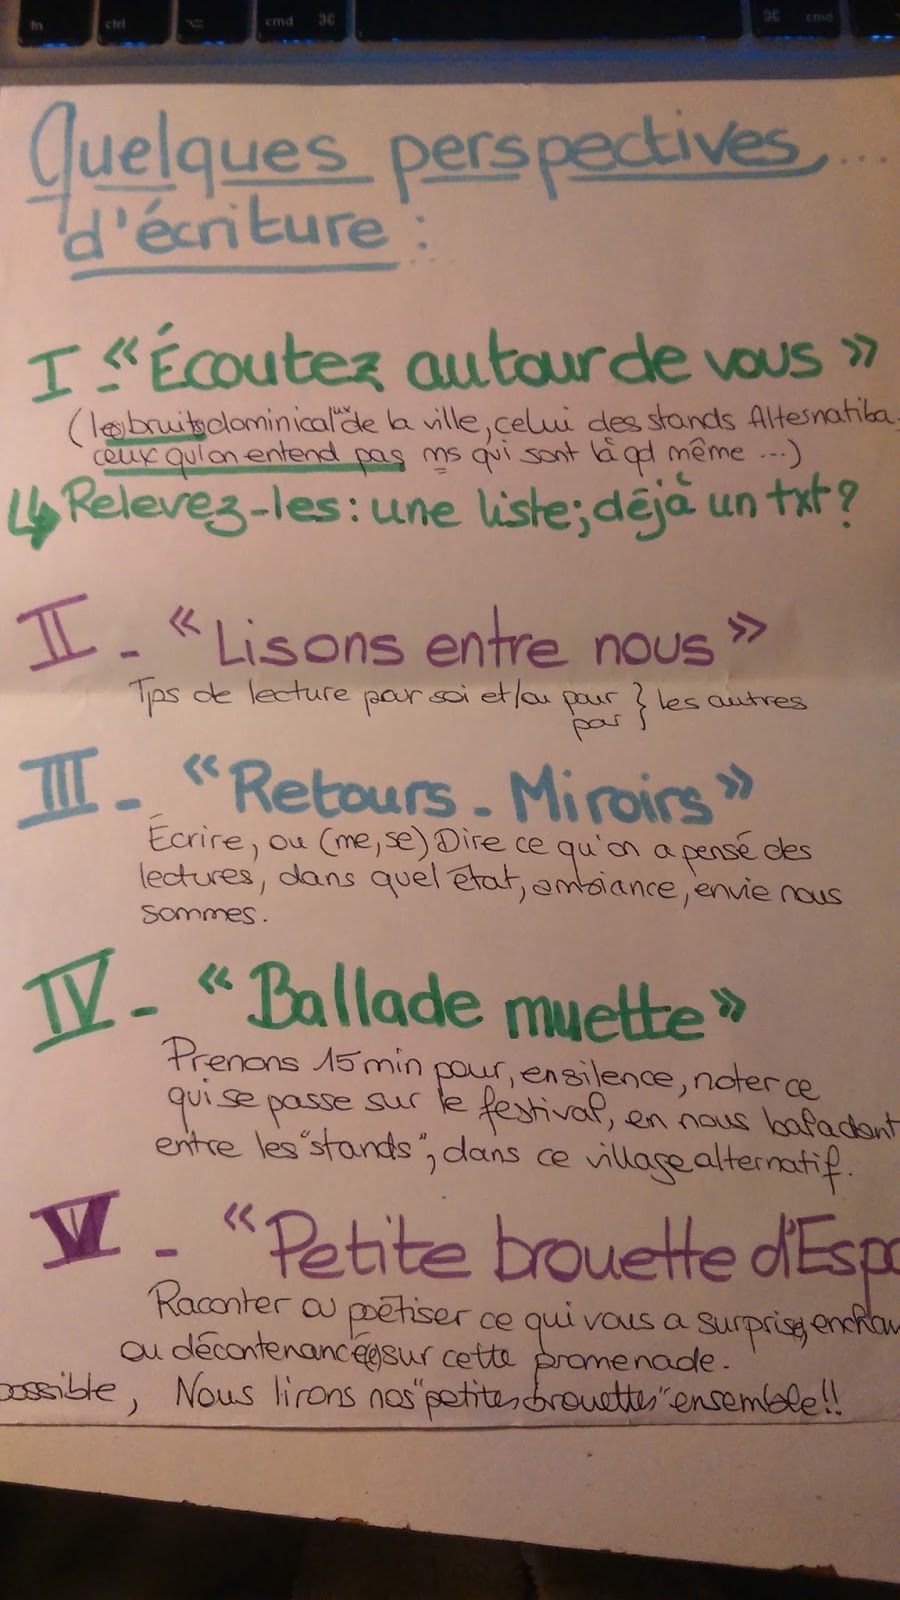 fn ctrl ⌥ cmd ⌘ ⌘ cmd
Quelques perspectives...
d'écriture :
I - « Écoutez autour de vous »
(les bruits dominicaux de la ville, celui des stands Alternatiba,
ceux qu'on entend pas ms qui sont là qd même ...)
↳ Relevez-les : une liste; déjà un txt ?
II - « Lisons entre nous »
Tps de lecture pour soi et/ou pour } les autres
par }
III - « Retours - Miroirs »
Écrire, ou (me, se) Dire ce qu'on a pensé des
lectures, dans quel état, ambiance, envie nous
sommes.
IV - « Ballade muette »
Prenons 15 min pour, en silence, noter ce
qui se passe sur le festival, en nous baladant
entre les "stands", dans ce village alternatif.
V - « Petite brouette d'Espo
Raconter ou poétiser ce qui vous a surpris, enchan
ou décontenancé(e) sur cette promenade.
possible, Nous lirons nos "petites brouettes" ensemble!!